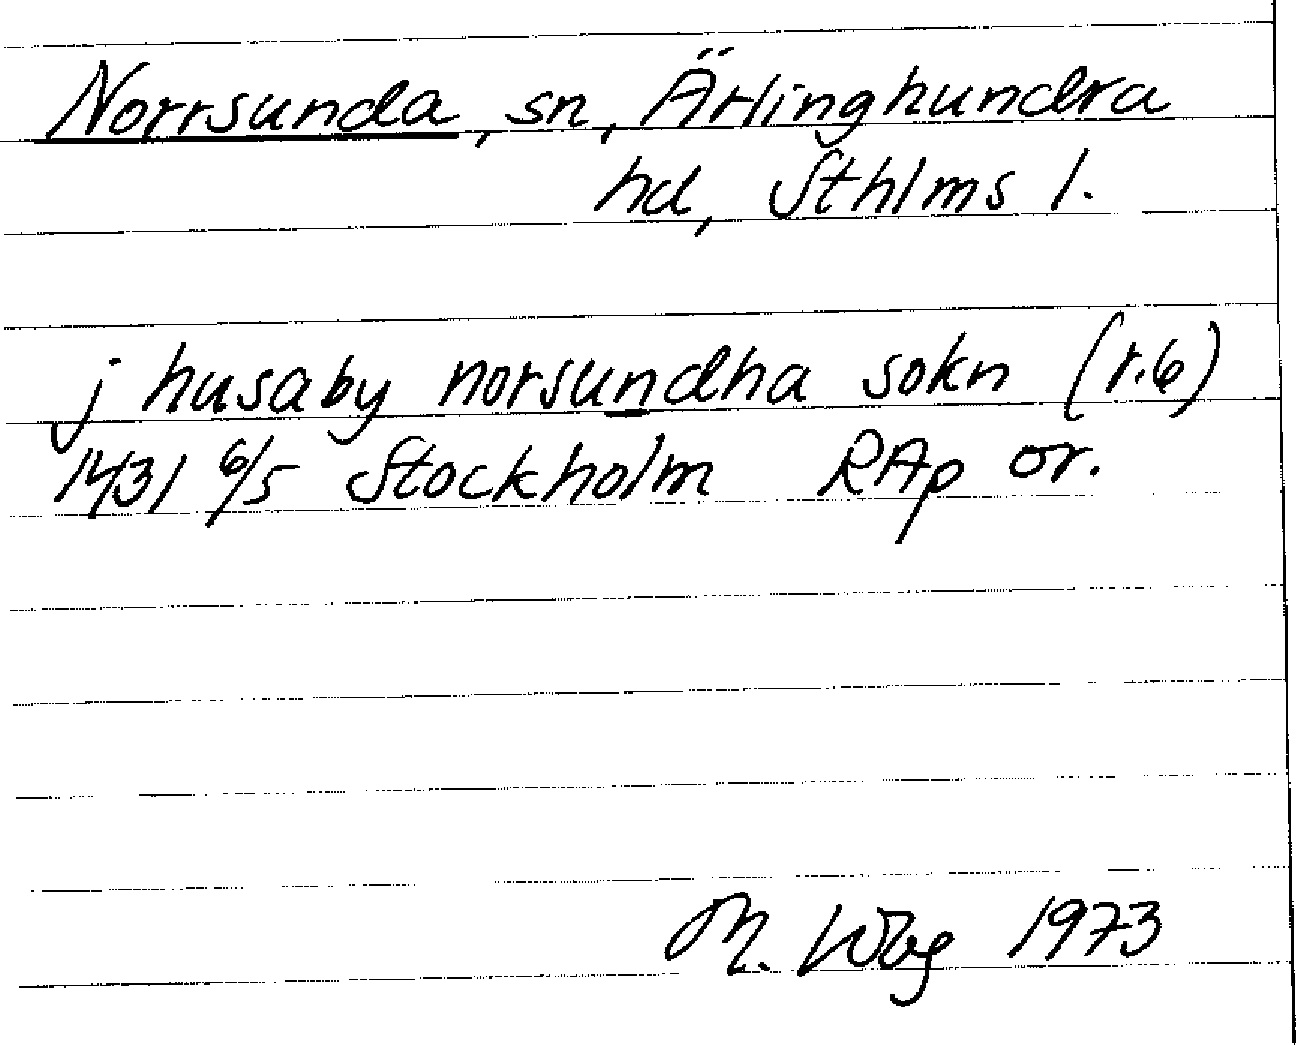 Norrsunda, sn, Ärlinghundra
hd, Sthlms l.
j husaby norsundha sokn (r.6)
1431 6/5 Stockholm RAp or.
M. Wbg 1973